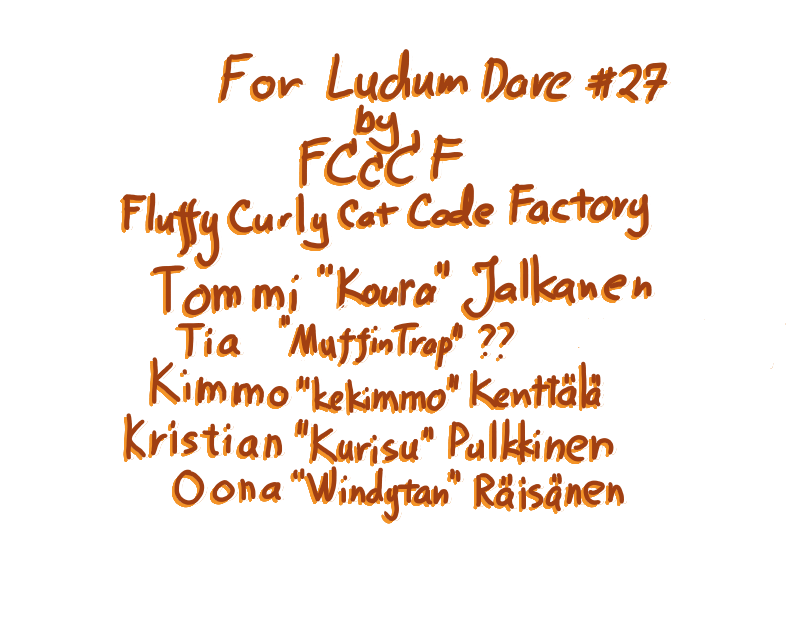 For Ludum Dare #27
by
FCcC F
Fluffy Curly Cat Code Factory
Tommi "Koura" Jalkanen
Tia "MuffinTrap" ??
Kimmo "kekimmo" Kenttälä
Kristian "Kurisu" Pulkkinen
Oona "Windytan" Räisänen